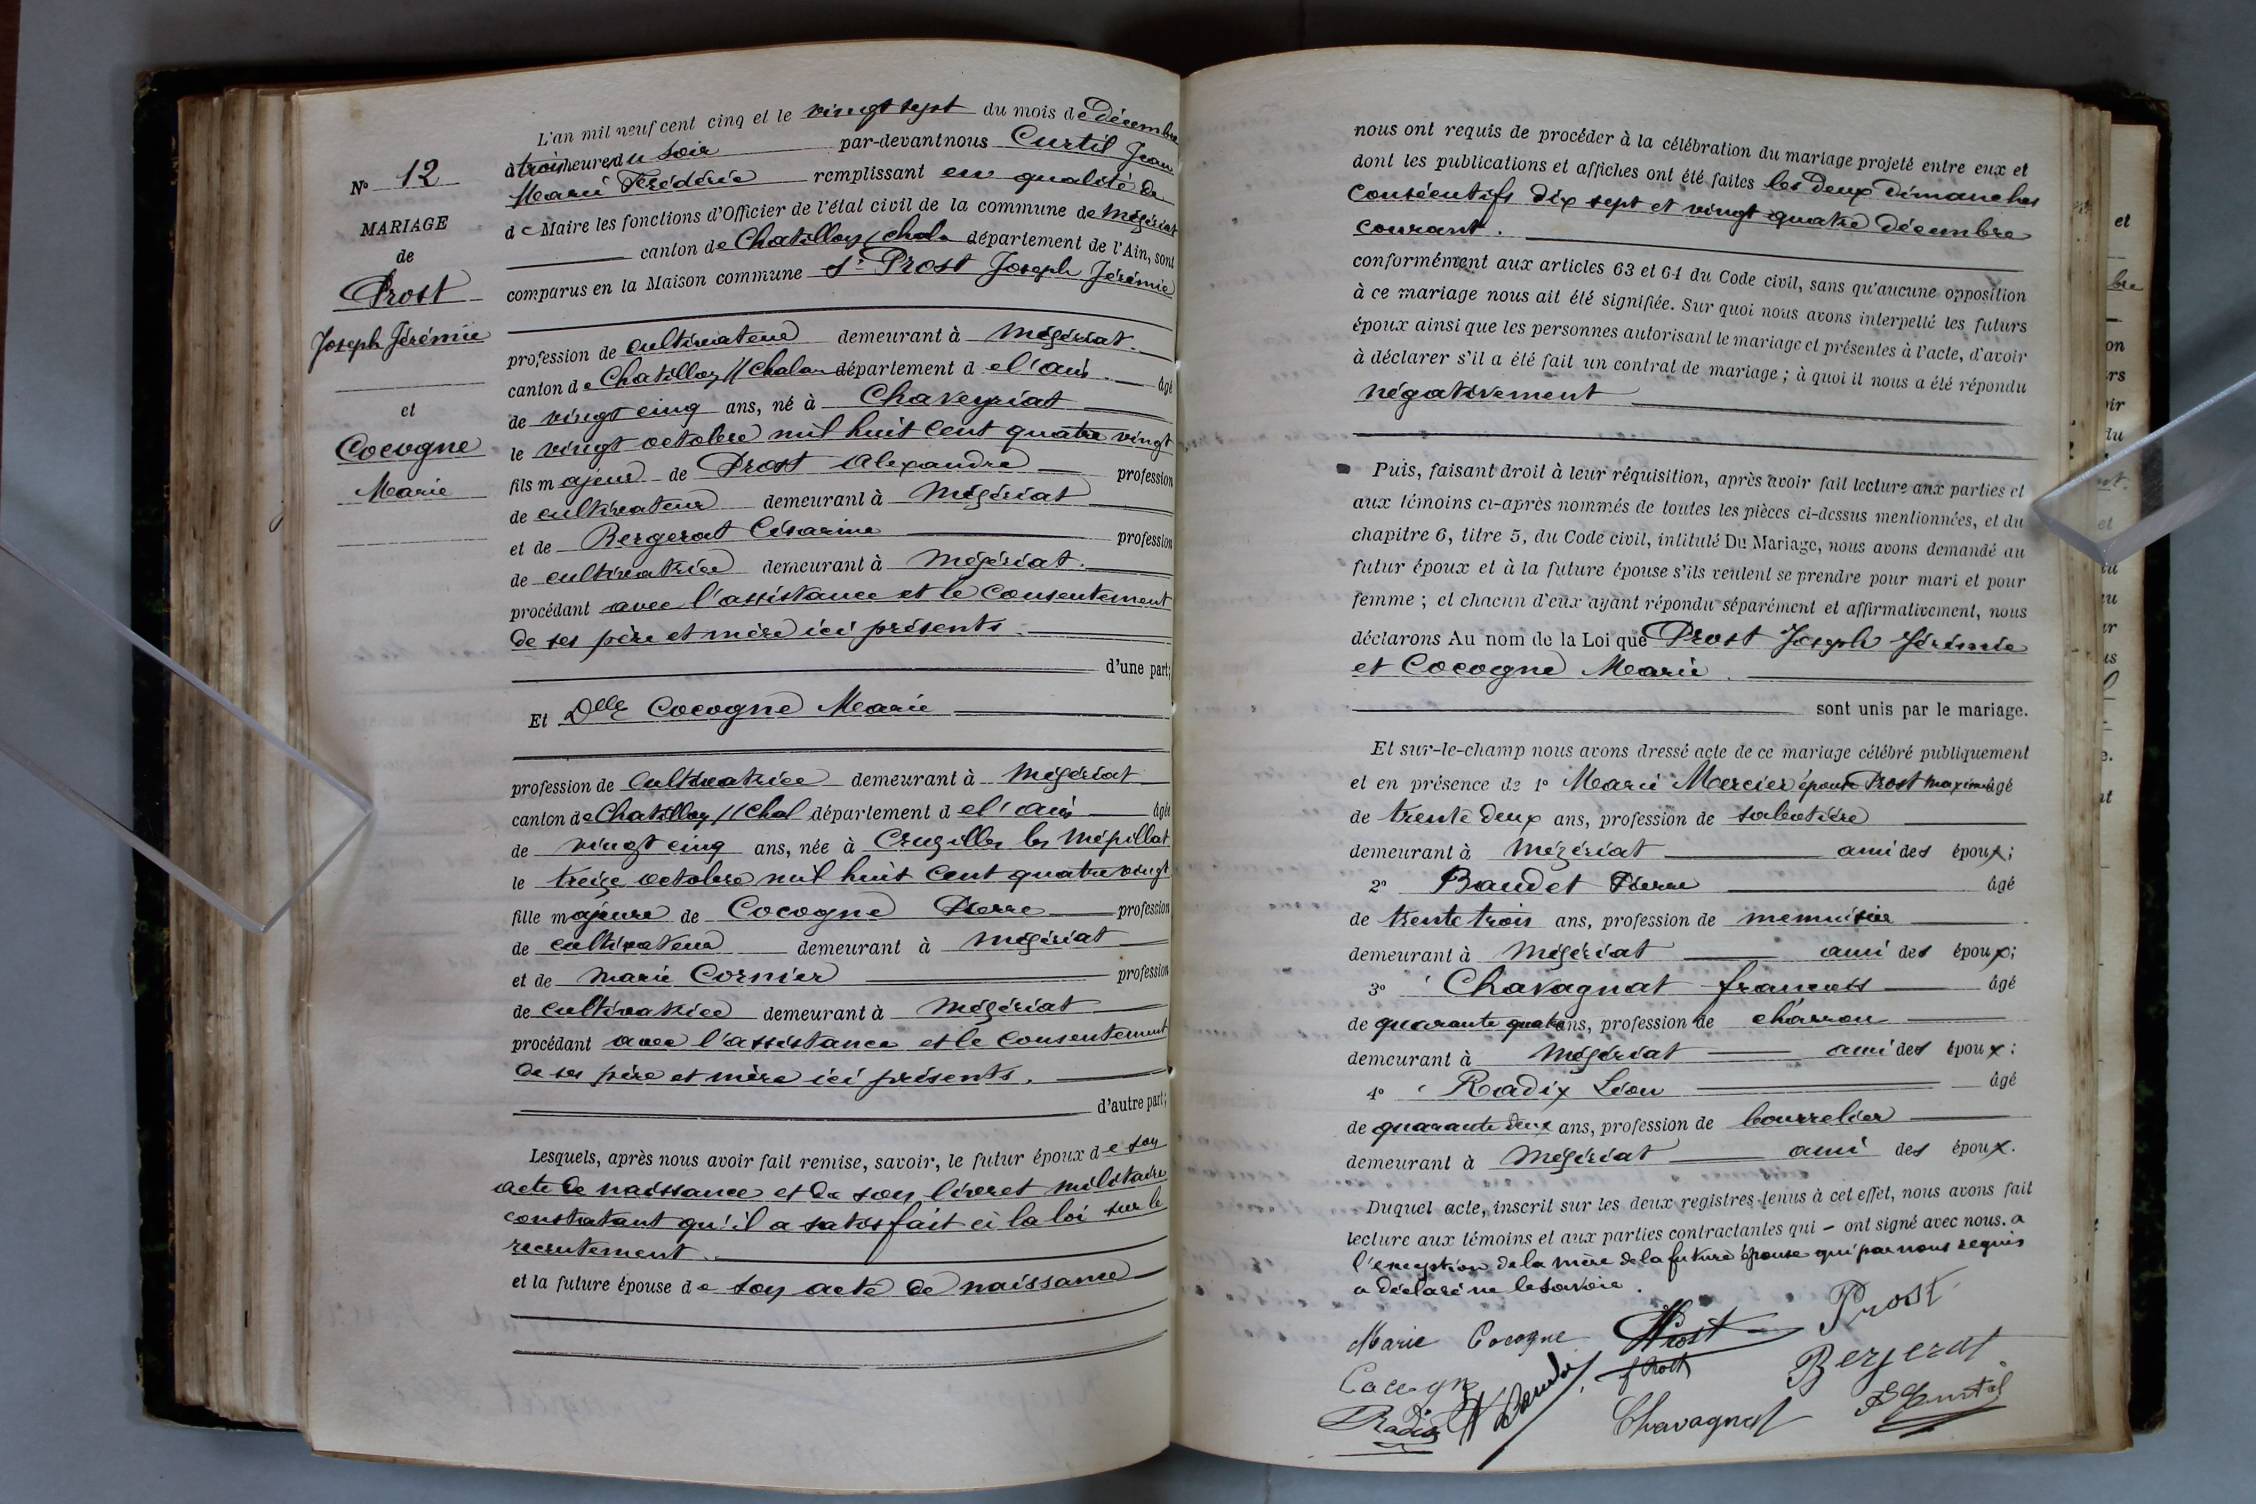 N° 12
MARIAGE
de
Prost
Joseph Jérémie
et
Cocogne
Marie
L'an mil neuf cent cinq et le vingt sept du mois de Décembre
à trois heures du soir par-devant nous Curtil Jean
Marie Frédéric remplissant en qualité de
de Maire les fonctions d'Officier de l'état civil de la commune de Mézériat
canton de Chatillon s/ Chal. département de l'Ain, sont
comparus en la Maison commune Sr Prost Joseph Jérémie
profession de cultivateur demeurant à Mézériat.
canton de Chatillon s/ Chalar. département de l'ain âgé
de vingt cinq ans, né à Chaveyriat
le vingt octobre mil huit cent quatre vingt
fils majeur de Prost Alexandre profession
de cultivateur demeurant à Mézériat
et de Bergerat Césarine profession
de cultivatrice demeurant à Mézériat.
procédant avec l'assistance et le consentement
de ses père et mère ici présents.
d'une part;
Et Dlle Cocogne Marie
profession de cultivatrice demeurant à Mézériat
canton de Chatillon s/ Chal département de l'ain âgée
de vingt cinq ans, née à Cruzilles les Mépillat
le treize octobre mil huit cent quatre vingt
fille majeure de Cocogne Pierre profession
de cultivateur demeurant à Mézériat
et de Marie Cornier profession
de cultivatrice demeurant à Mézériat
procédant avec l'assistance et le consentement
de ses père et mère ici présents.
d'autre part;
Lesquels, après nous avoir fait remise, savoir, le futur époux de son
acte de naissance et de son livret militaire
constatant qu'il a satisfait à la loi sur le
recrutement.
et la future épouse de son acte de naissance
nous ont requis de procéder à la célébration du mariage projeté entre eux et
dont les publications et affiches ont été faites les deux dimanches
consécutifs dix sept et vingt quatre décembre
courant.
conformément aux articles 63 et 64 du Code civil, sans qu'aucune opposition
à ce mariage nous ait été signifiée. Sur quoi nous avons interpellé les futurs
époux ainsi que les personnes autorisant le mariage et présentes à l'acte, d'avoir
à déclarer s'il a été fait un contrat de mariage; à quoi il nous a été répondu
négativement
Puis, faisant droit à leur réquisition, après avoir fait lecture aux parties et
aux témoins ci-après nommés de toutes les pièces ci-dessus mentionnées, et du
chapitre 6, titre 5, du Code civil, intitulé Du Mariage, nous avons demandé au
futur époux et à la future épouse s'ils veulent se prendre pour mari et pour
femme; et chacun d'eux ayant répondu séparément et affirmativement, nous
déclarons Au nom de la Loi que Prost Joseph Jérémie
et Cocogne Marie.
sont unis par le mariage.
Et sur-le-champ nous avons dressé acte de ce mariage célébré publiquement
et en présence de 1° Marie Mercier épouse Prost Maxime âgé
de trente deux ans, profession de sabotière
demeurant à Mézériat ami des époux;
2° Baudet Pierre âgé
de trente trois ans, profession de menuisier
demeurant à Mézériat ami des époux;
3° Chavagnat françois âgé
de quarante quatre ans, profession de charron
demeurant à Mézériat ami des époux;
4° Radix Léon âgé
de quarante deux ans, profession de bourrelier
demeurant à Mézériat ami des époux.
Duquel acte, inscrit sur les deux registres tenus à cet effet, nous avons fait
lecture aux témoins et aux parties contractantes qui – ont signé avec nous. a
l'exception de la mère de la future épouse qui par nous requis
a déclaré ne le savoir.
Marie Cocogne Prost Prost
Cocogne Baudet Prost Bergerat
Radix Chavagnat Curtil